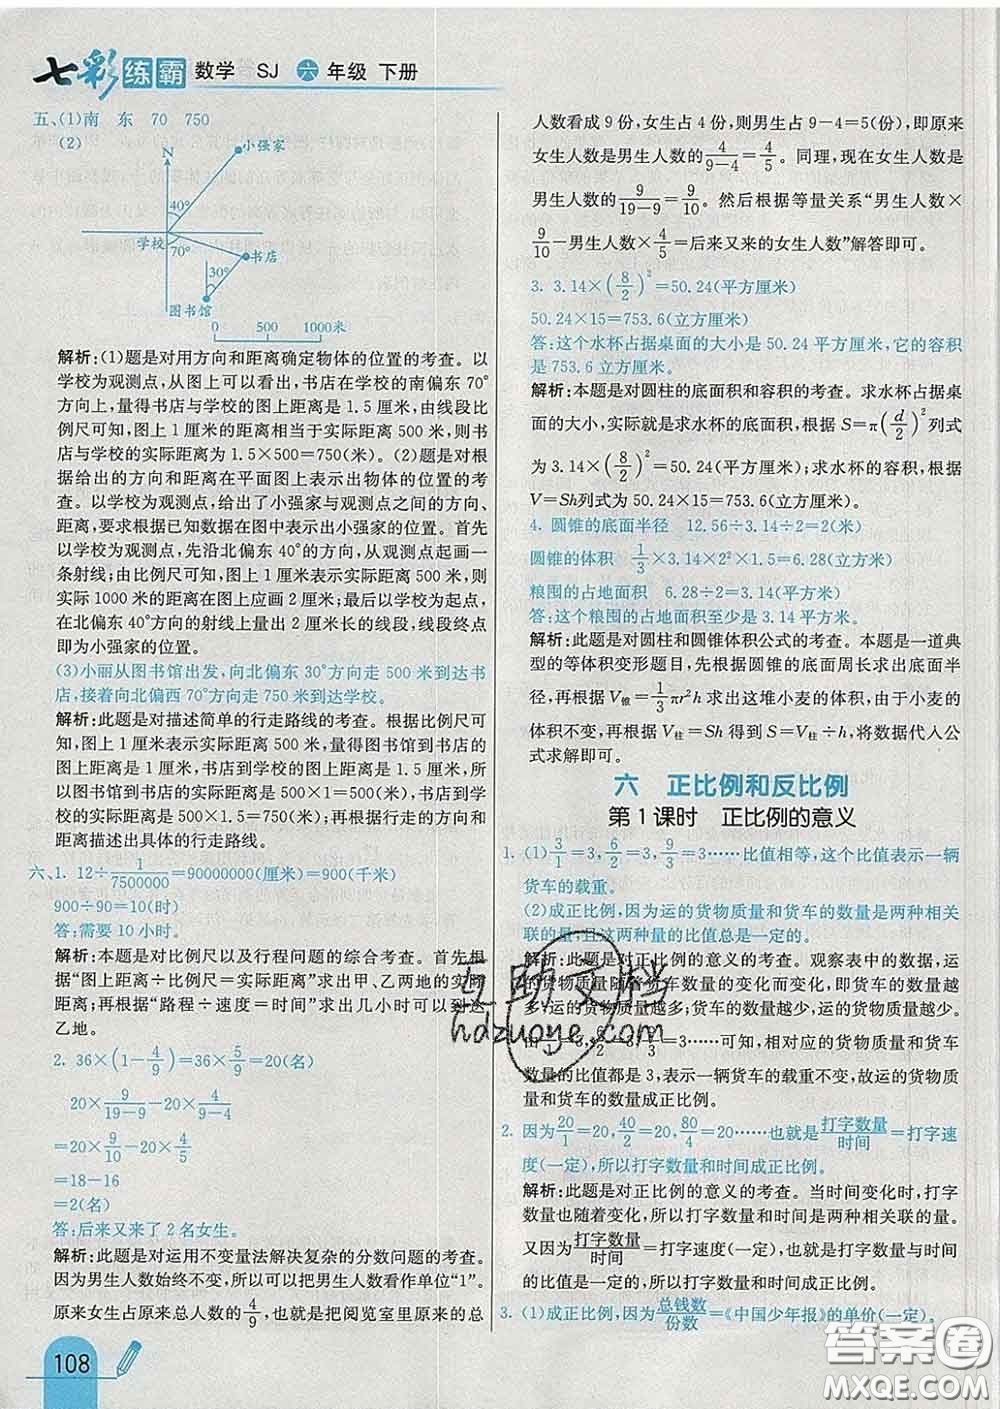 七彩练霸 数学 SJ 六 年级 下册
五、(1)南 东 70 750
(2)
N
小强家
40°
学校
70°
书店
30°
图书馆
0 500 1000米
解析:(1)题是对用方向和距离确定物体的位置的考查。以
学校为观测点,从图上可以看出,书店在学校的南偏东70°
方向上,量得书店与学校的图上距离是1.5厘米,由线段比
例尺可知,图上1厘米的距离相当于实际距离500米,则书
店与学校的实际距离为1.5×500=750(米)。(2)题是对根
据给出的方向和距离在平面图上表示出物体的位置的考
查。以学校为观测点,给出了小强家与观测点之间的方向、
距离,要求根据已知数据在图中表示出小强家的位置。首先
以学校为观测点,先沿北偏东40°的方向,从观测点起画一
条射线;由比例尺可知,图上1厘米表示实际距离500米,则
实际1000米的距离在图上应画2厘米;最后以学校为起点,
在北偏东40°方向的射线上量出2厘米长的线段,线段终点
即为小强家的位置。
(3)小丽从图书馆出发,向北偏东30°方向走500米到达书
店,接着向北偏西70°方向走750米到达学校。
解析:此题是对描述简单的行走路线的考查。根据比例尺可
知,图上1厘米表示实际距离500米,量得图书馆到书店的
图上距离是1厘米,书店到学校的图上距离是1.5厘米,所
以图书馆到书店的实际距离是1×500=500(米),书店到学
校的实际距离是1.5×500=750(米);再根据行走的方向和
距离描述出具体的行走路线。
六、1. 12÷1/7500000=90000000(厘米)=900(千米)
900÷90=10(时)
答:需要10小时。
解析:本题是对比例尺以及行程问题的综合考查。首先根
据“图上距离÷比例尺=实际距离”求出甲、乙两地的实际
距离;再根据“路程÷速度=时间”求出几小时可以到达
乙地。
2. 36×(1-4/9)=36×5/9=20(名)
20×9/(19-9)-20×4/(9-4)
=20×9/10-20×4/5
=18-16
=2(名)
答:后来又来了2名女生。
解析:此题是对运用不变量法解决复杂的分数问题的考查。
因为男生人数始终不变,所以可以把男生人数看作单位“1”。
原来女生占原来总人数的4/9,也就是把阅览室里原来的总
108
人数看成9份,女生占4份,则男生占9-4=5(份),即原来
女生人数是男生人数的4/(9-4)=4/5。同理,现在女生人数是
男生人数的9/(19-9)=9/10。然后根据等量关系“男生人数×
9/10-男生人数×4/5=后来又来的女生人数”解答即可。
3. 3.14×(8/2)²=50.24(平方厘米)
50.24×15=753.6(立方厘米)
答:这个水杯占据桌面的大小是50.24平方厘米,它的容积
是753.6立方厘米。
解析:本题是对圆柱的底面积和容积的考查。求水杯占据桌
面的大小,实际就是求水杯的底面积,根据S=π(d/2)²列式
为3.14×(8/2)²=50.24(平方厘米);求水杯的容积,根据
V=Sh列式为50.24×15=753.6(立方厘米)。
4. 圆锥的底面半径 12.56÷3.14÷2=2(米)
圆锥的体积 1/3×3.14×2²×1.5=6.28(立方米)
粮囤的占地面积 6.28÷2=3.14(平方米)
答:这个粮囤的占地面积至少是3.14平方米。
解析:此题是对圆柱和圆锥体积公式的考查。本题是一道典
型的等体积变形题目,首先根据圆锥的底面周长求出底面半
径,再根据V锥=1/3πr²h求出这堆小麦的体积,由于小麦的
体积不变,再根据V柱=Sh得到S=V柱÷h,将数据代人公
式求解即可。
六 正比例和反比例
第1课时 正比例的意义
1. (1)3/1=3,6/2=3,9/3=3……比值相等,这个比值表示一辆
货车的载重。
(2)成正比例,因为运的货物质量和货车的数量是两种相关
联的量,且这两种量的比值总是一定的。
解析:此题是对正比例的意义的考查。观察表中的数据,运
的货物质量随着货车数量的变化而变化,即货车的数量越
多,运的货物质量越多;货车的数量越少,运的货物质量越少。
由3/1=3,6/2=3,9/3=3……可知,相对应的货物质量与货车
数量的比值都是3,表示一辆货车的载重不变,故运的货物质
量和货车的数量成正比例。
2. 因为20/1=20,40/2=20,80/4=20……也就是打字数量/时间=打字速
度(一定),所以打字数量和时间成正比例。
解析:此题是对正比例的意义的考查。当时间变化时,打字
数量也随着变化,所以打字数量和时间是两种相关联的量。
又因为打字数量/时间=打字速度(一定),所以打字数量与时间
的比值一定,所以打字数量和时间成正比例。
3. (1)成正比例,因为总钱数/份数=《中国少年报》的单价(一定)。
互助文档
hdzuoye.com
答案圈
MXQE.COM